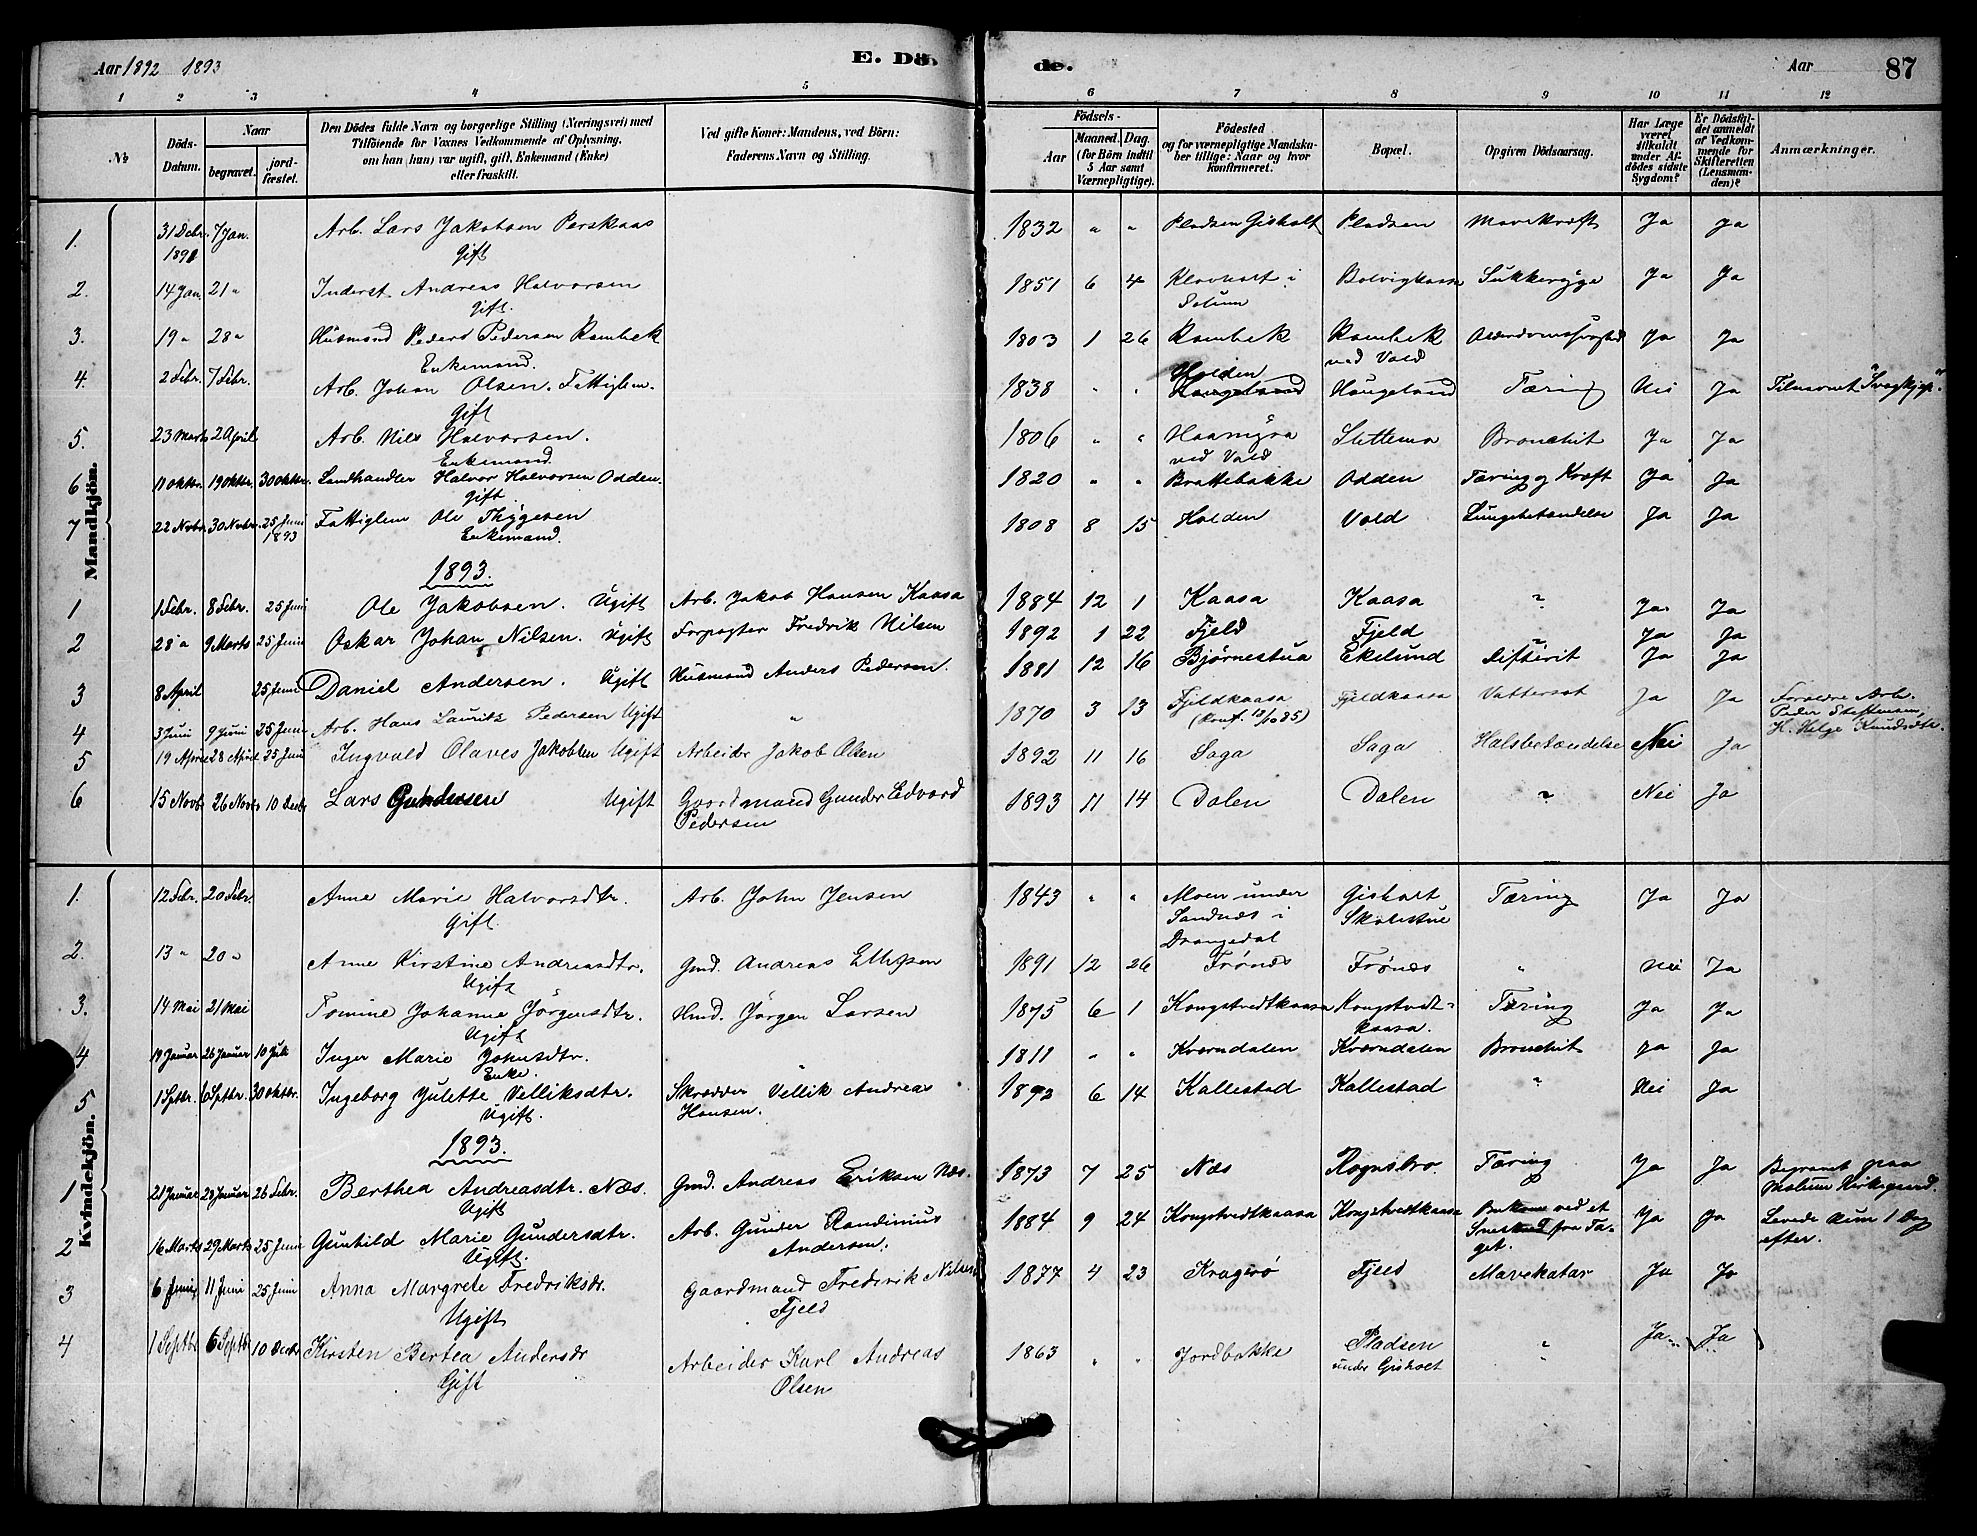 Aar 1892 1893
E. Dö-
de.
Aar
87
1 2 3 4 5 6 7 8 9 10 11 12
No
Döds-Datum.
Naar
begravet.
jord-fæstet.
Den Dödes fulde Navn og borgerlige Stilling (Næringsvei) med
Tilföiende for Voxnes Vedkommende af Oplysning,
om han (hun) var ugift, gift, Enkemand (Enke)
eller fraskilt.
Ved gifte Koner: Mandens, ved Börn:
Faderens Navn og Stilling.
Födsels-
Aar
Maaned. Dag.
(for Börn indtil
5 Aar samt
Værnepligtige).
Födested
og for værnepligtige Mandska-
ber tillige: Naar og hvor
konfirmeret.
Bopæl.
Opgiven Dödsaarsag.
Har Læge
været
tilkaldt
under Af-
dödes sidste
Sygdom?
Er Dödsfal-
det anmeldt
af Vedkom-
mende for
Skifteretten
(Lensman-
den)?
Anmærkninger.
Mandkjön.
1. 31 Debr. 1891 7 Jan. Arb. Lars Jakobsen Perskaas 1832 " " Pladsen Gisholt Pladsen Mavekræft Ja Ja
Gift
2. 14 Jan. 21 " Inderst Andreas Halvorsen 1851 6 4 Klovholt i Bolvigkaasa Sukkersyge Ja Ja
gift. Solum
3. 19 " 28 " Husmand Peder Pedersen Rambek 1803 1 26 Rambek Rambek Ja Ja
Enkemand. ved Vold
4. 2 Febr. 7 Febr. Arb. Johan Olsen. Fattiglem. 1838 " " Holden Haugeland Tæring Nei Ja Tilnavnet
Gift
5. 23 Marts 2 April Arb. Nils Halvorsen. 1806 " " Haamyra Slettemo Bronchit Ja Ja
Enkemand. ved Vold
6 11 Oktbr. 19 Oktbr. 30 Oktbr. Landhandler Halvor Halvorsen Odden. 1820 " " Brattebakke Odden Tæring og Kræft Ja Ja
gift.
7 22 Novbr. 30 Novbr. 25 Juni 1893 Fattiglem Ole Thygesen 1808 8 15 Holden Vold Lungebetændelse Ja Ja
Enkemand.
1893.
1 1 Febr. 8 Febr. 25 Juni Ole Jakobsen. Ugift Arb. Jakob Hansen Kaasa 1884 12 1 Kaasa Kaasa " Ja. Ja
2 28 " 9 Marts 25 Juni Oskar Johan Nilsen. Ugift Forpagter Fredrik Nilsen 1892 1 22 Fjeld Fjeld Ja Ja
3 8 April 25 Juni Daniel Andersen. Ugift Husmand Anders Pedersen. 1881 12 16 Bjørnestua Ekelund Difterit Ja Ja
4 3 Juni 9 Juni 25 Juni Arb. Hans Lauritz Pedersen Ugift " 1870 3 13 Fjeldkaasa Fjeldkaasa Vattersot Ja Ja Forældre Arb.
(konf. 18/10 85) Peder Steffensen,
H. Helge Knudsdtr.
5 19 April 28 April 25 Juni Ingvald Olaves Jakobsen Ugift Arbeider Jakob Olsen 1892 11 16 Saga Saga Halsbetændelse Nei Ja
6 15 Novb. 26 Novbr 10 Decbr Lars Gundersen Ugift Gaardmand Gunder Edvard 1893 11 14 Dalen Dalen " Nei Ja
Pedersen
Kvindekjön.
1. 12 Febr. 20 Febr. Anne Marie Halvorsdtr. Arb. John Jensen 1843 " " Moen under Gisholt Tæring Ja Ja
Gift. Sandnæs i Skolestue
Drangedal
2. 13 " 20 " Anne Kirstine Andreasdtr. Gmd. Andreas Ellefsen 1891 12 26 Frønæs Frønæs " Nei Ja
Ugift
3. 14 Mai 21 Mai Tomine Johanne Jörgensdtr. Hmd. Jörgen Larsen 1875 6 1 Kongstvedtkaasa Kongstvedt- Tæring Ja Ja
Ugift kaasa.
4 19 Januar 26 Januar 10 Juli Inger Marie Johnsdtr. " 1811 " " Kværndalen Kværndalen Bronchit Ja Ja
Enke.
5 1 Septbr. 6 Septbr. 30 Oktbr. Ingeborg Julette Velliksdtr. Skrædder Vellik Andreas 1892 6 14 Kallestad Kallestad " Nei Ja
Ugift. Hansen.
1893.
1 21 Januar 28 Januar 26 Febr. Berthea Andreasdtr. Næs. Gmd. Andreas Eriksen Næs. 1873 7 25 Næs Rognsbro Tæring Ja Ja Begravet paa
Ugift Melum Kirkegaard.
2 16 Marts 29 Marts 25 Juni Gunhild Marie Gundersdtr. Arb. Gunder Randinius 1884 9 24 Kongstvedtkaasa Kongstvedtkaasa Omkom ved et Ja Ja Levede kun 1 Dag
Ugift. Andersen. Sneskred fra Ta- efter.
get.
3 6 Juni 11 Juni 25 Juni Anna Margrete Fredriksdr. Gaardmand Frederik Nilsen 1877 4 23 Kragerø Fjeld Mavekatar Ja Ja
Ugift Fjeld
4 1 Septbr 6 Septbr 10 Decbr Kirsten Bertea Andersdr Arbeider Karl Andreas 1863 " " Jordbakke Pladsen " Ja Ja
Gift Olsen under Gisholt